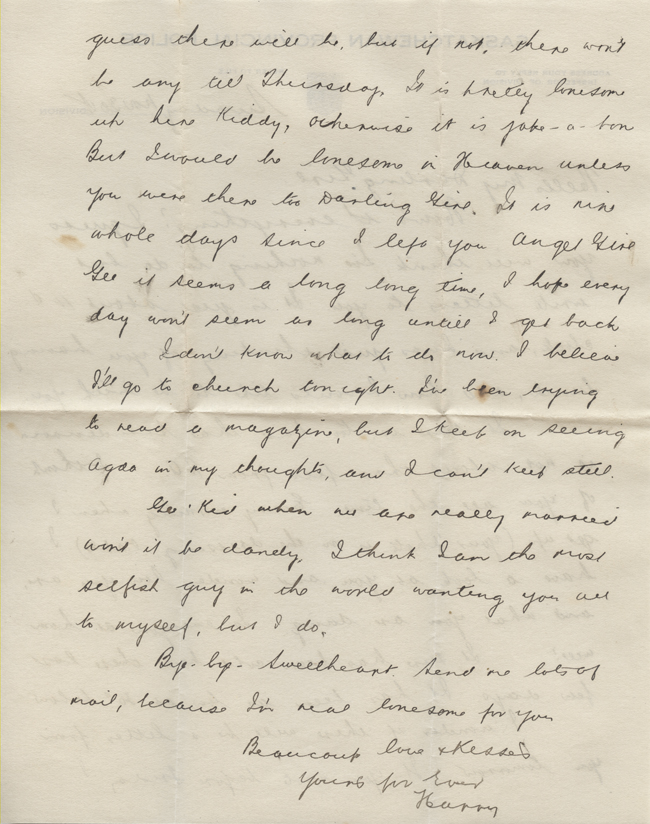 guess there will be, but if not, there won't
be any till Thursday. It is pretty lonesome
up here Kiddy, otherwise it is jake-a-bon
But I would be lonesome in Heaven unless
you were there too Darling Girl. It is nine
whole days since I left you Angel Girl
Gee it seems a long long time, I hope every
day won't seem as long untill I get back
I don't know what to do now. I believe
I'll go to church tonight. I've been trying
to read a magazine, but I keep on seeing
Agda in my thoughts, and I can't keep still.
Gee Kid when we are really married
won't it be dandy, I think I am the most
selfish guy in the world wanting you all
to myself, but I do.
Bye-bye- Sweetheart. Send me lots of
mail, because I'm real lonesome for you
Beaucoup love & Kisses
Yours for Ever
Harry